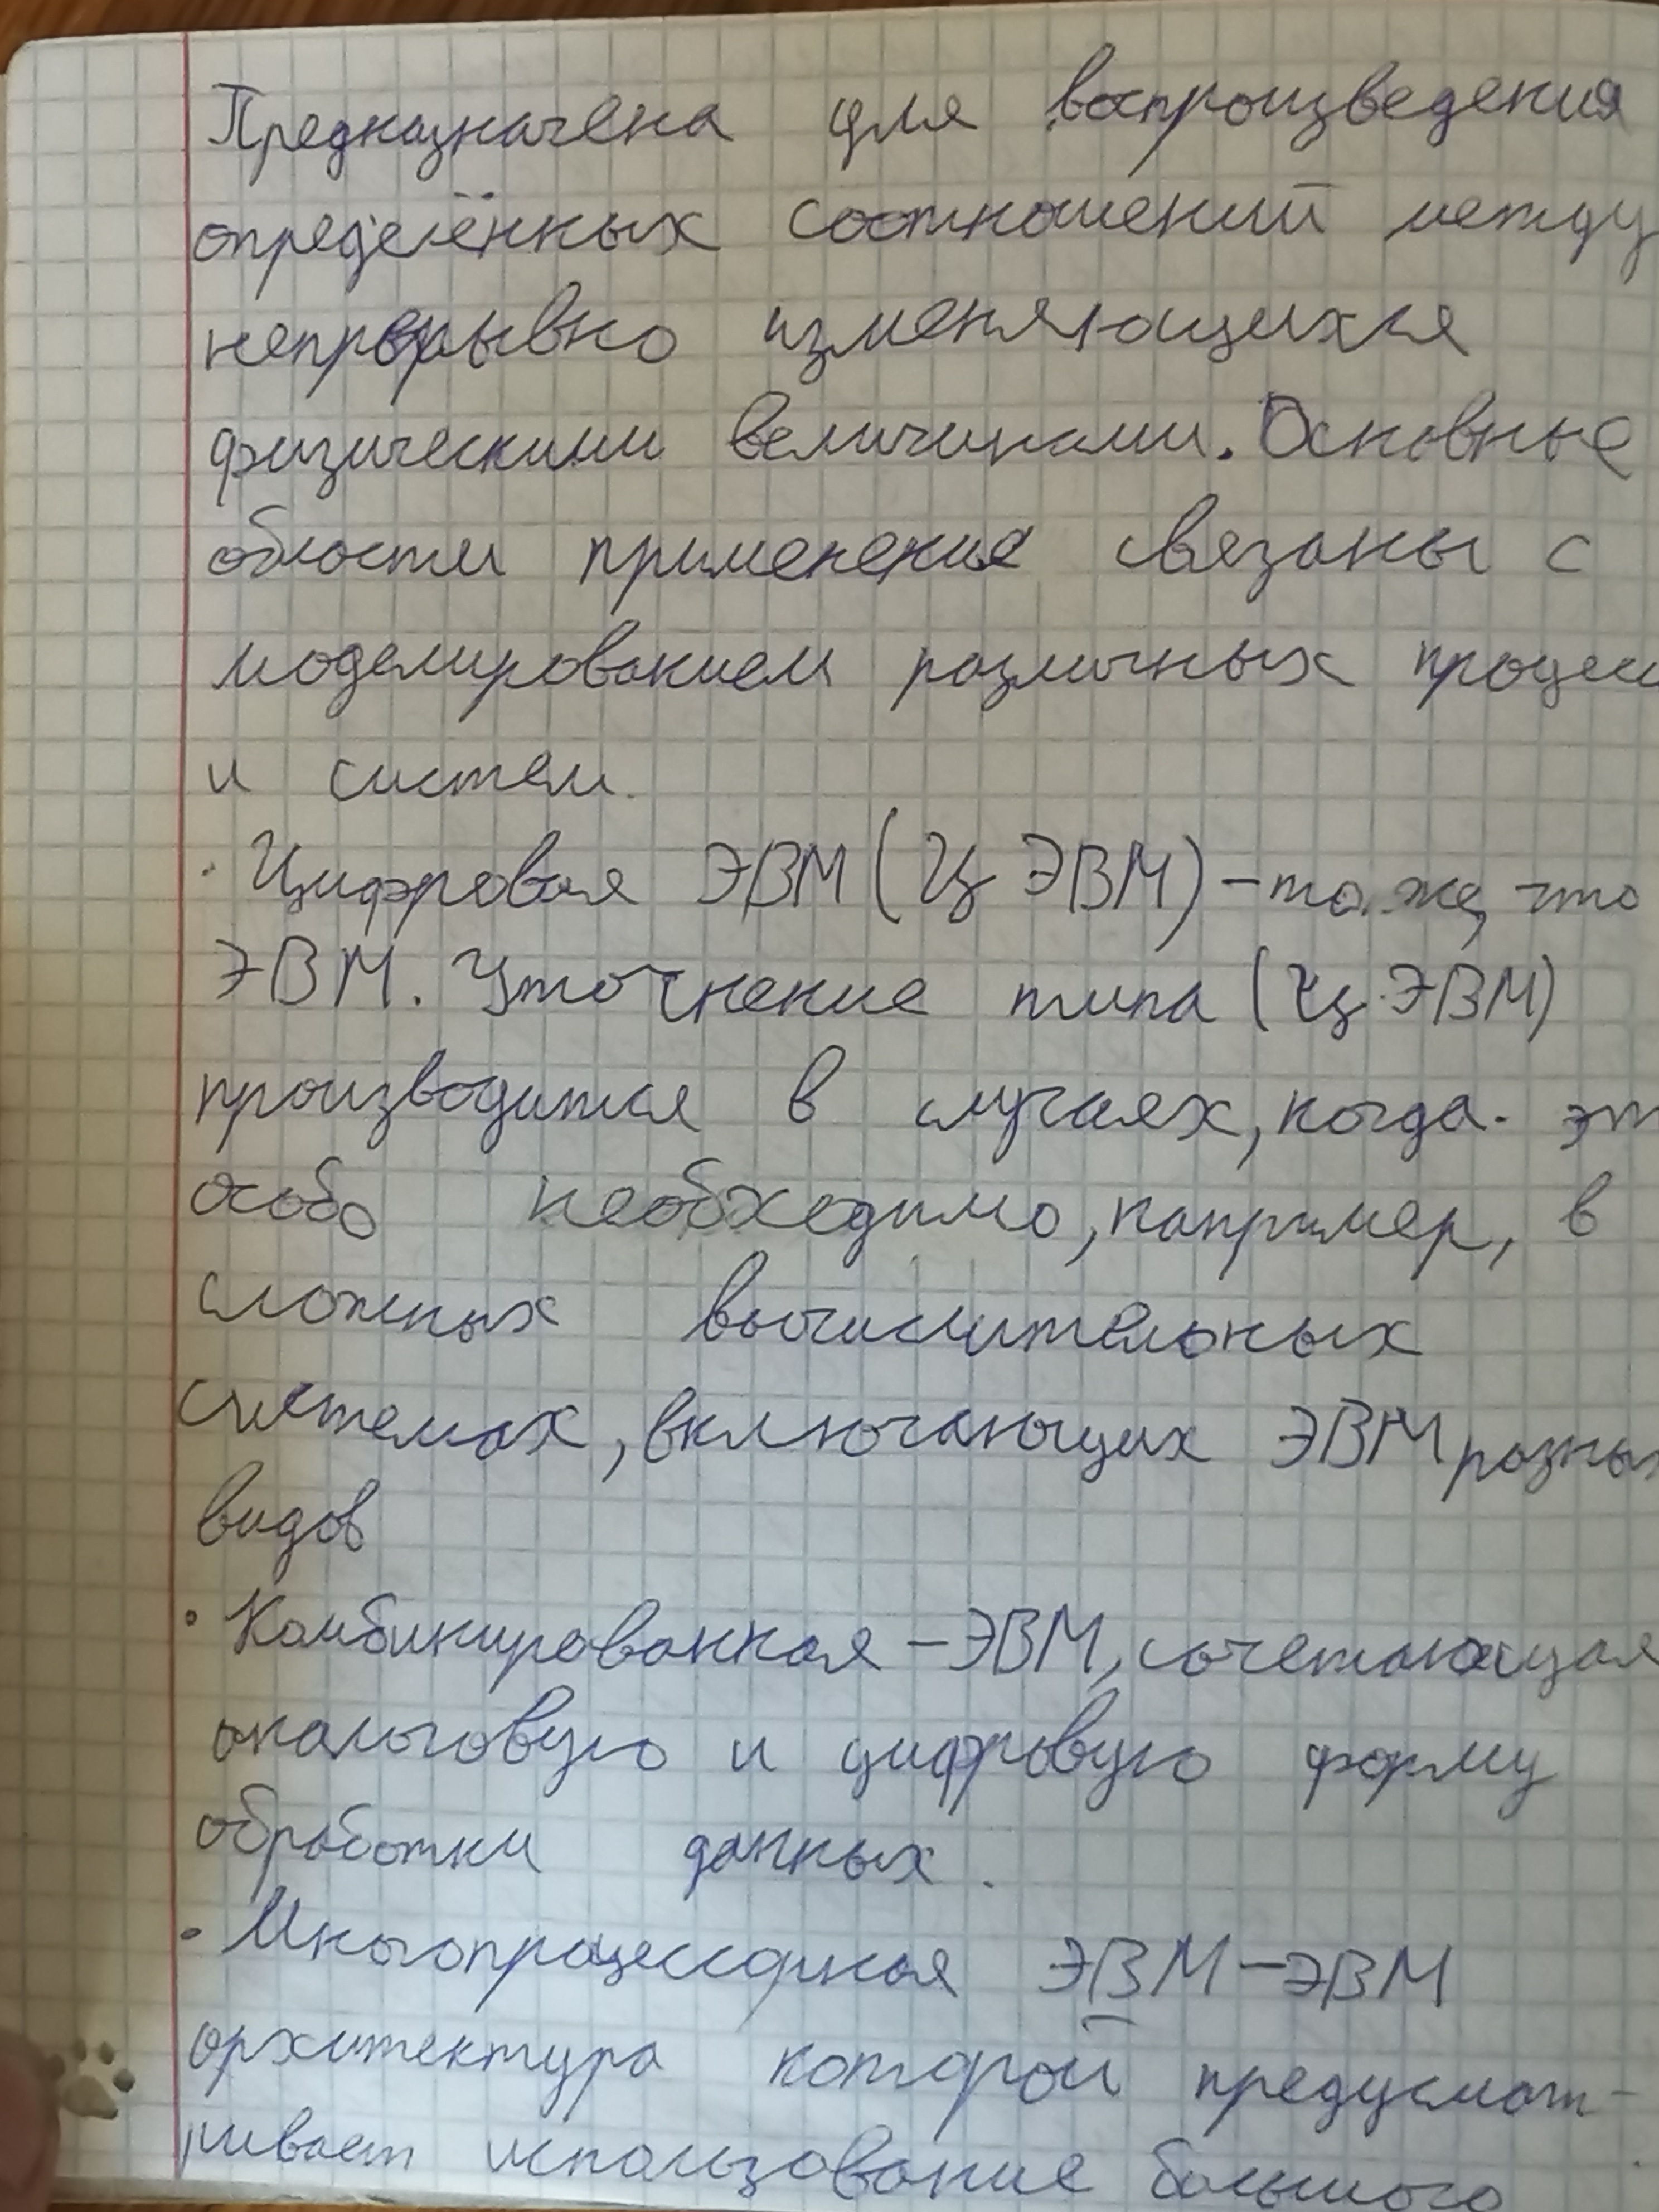 Предназначена для воспроизведения
определённых соотношений между
непрерывно изменяющихся
физическими величинами. Основные
области применение связаны с
моделированием различных процесс
и систем.
· Цифровая ЭВМ (ЦЭВМ) – то же, что
ЭВМ. Уточнение типа (ЦЭВМ)
производится в случаях, когда эт
особо необходимо, например, в
сложных вычислительных
системах, включающих ЭВМ разных
видов
· Комбинированная – ЭВМ, сочетающая
аналоговую и цифровую форму
обработки данных.
· Многопроцессорная ЭВМ – ЭВМ
архитектура которой предусмат-
ривает использование большого